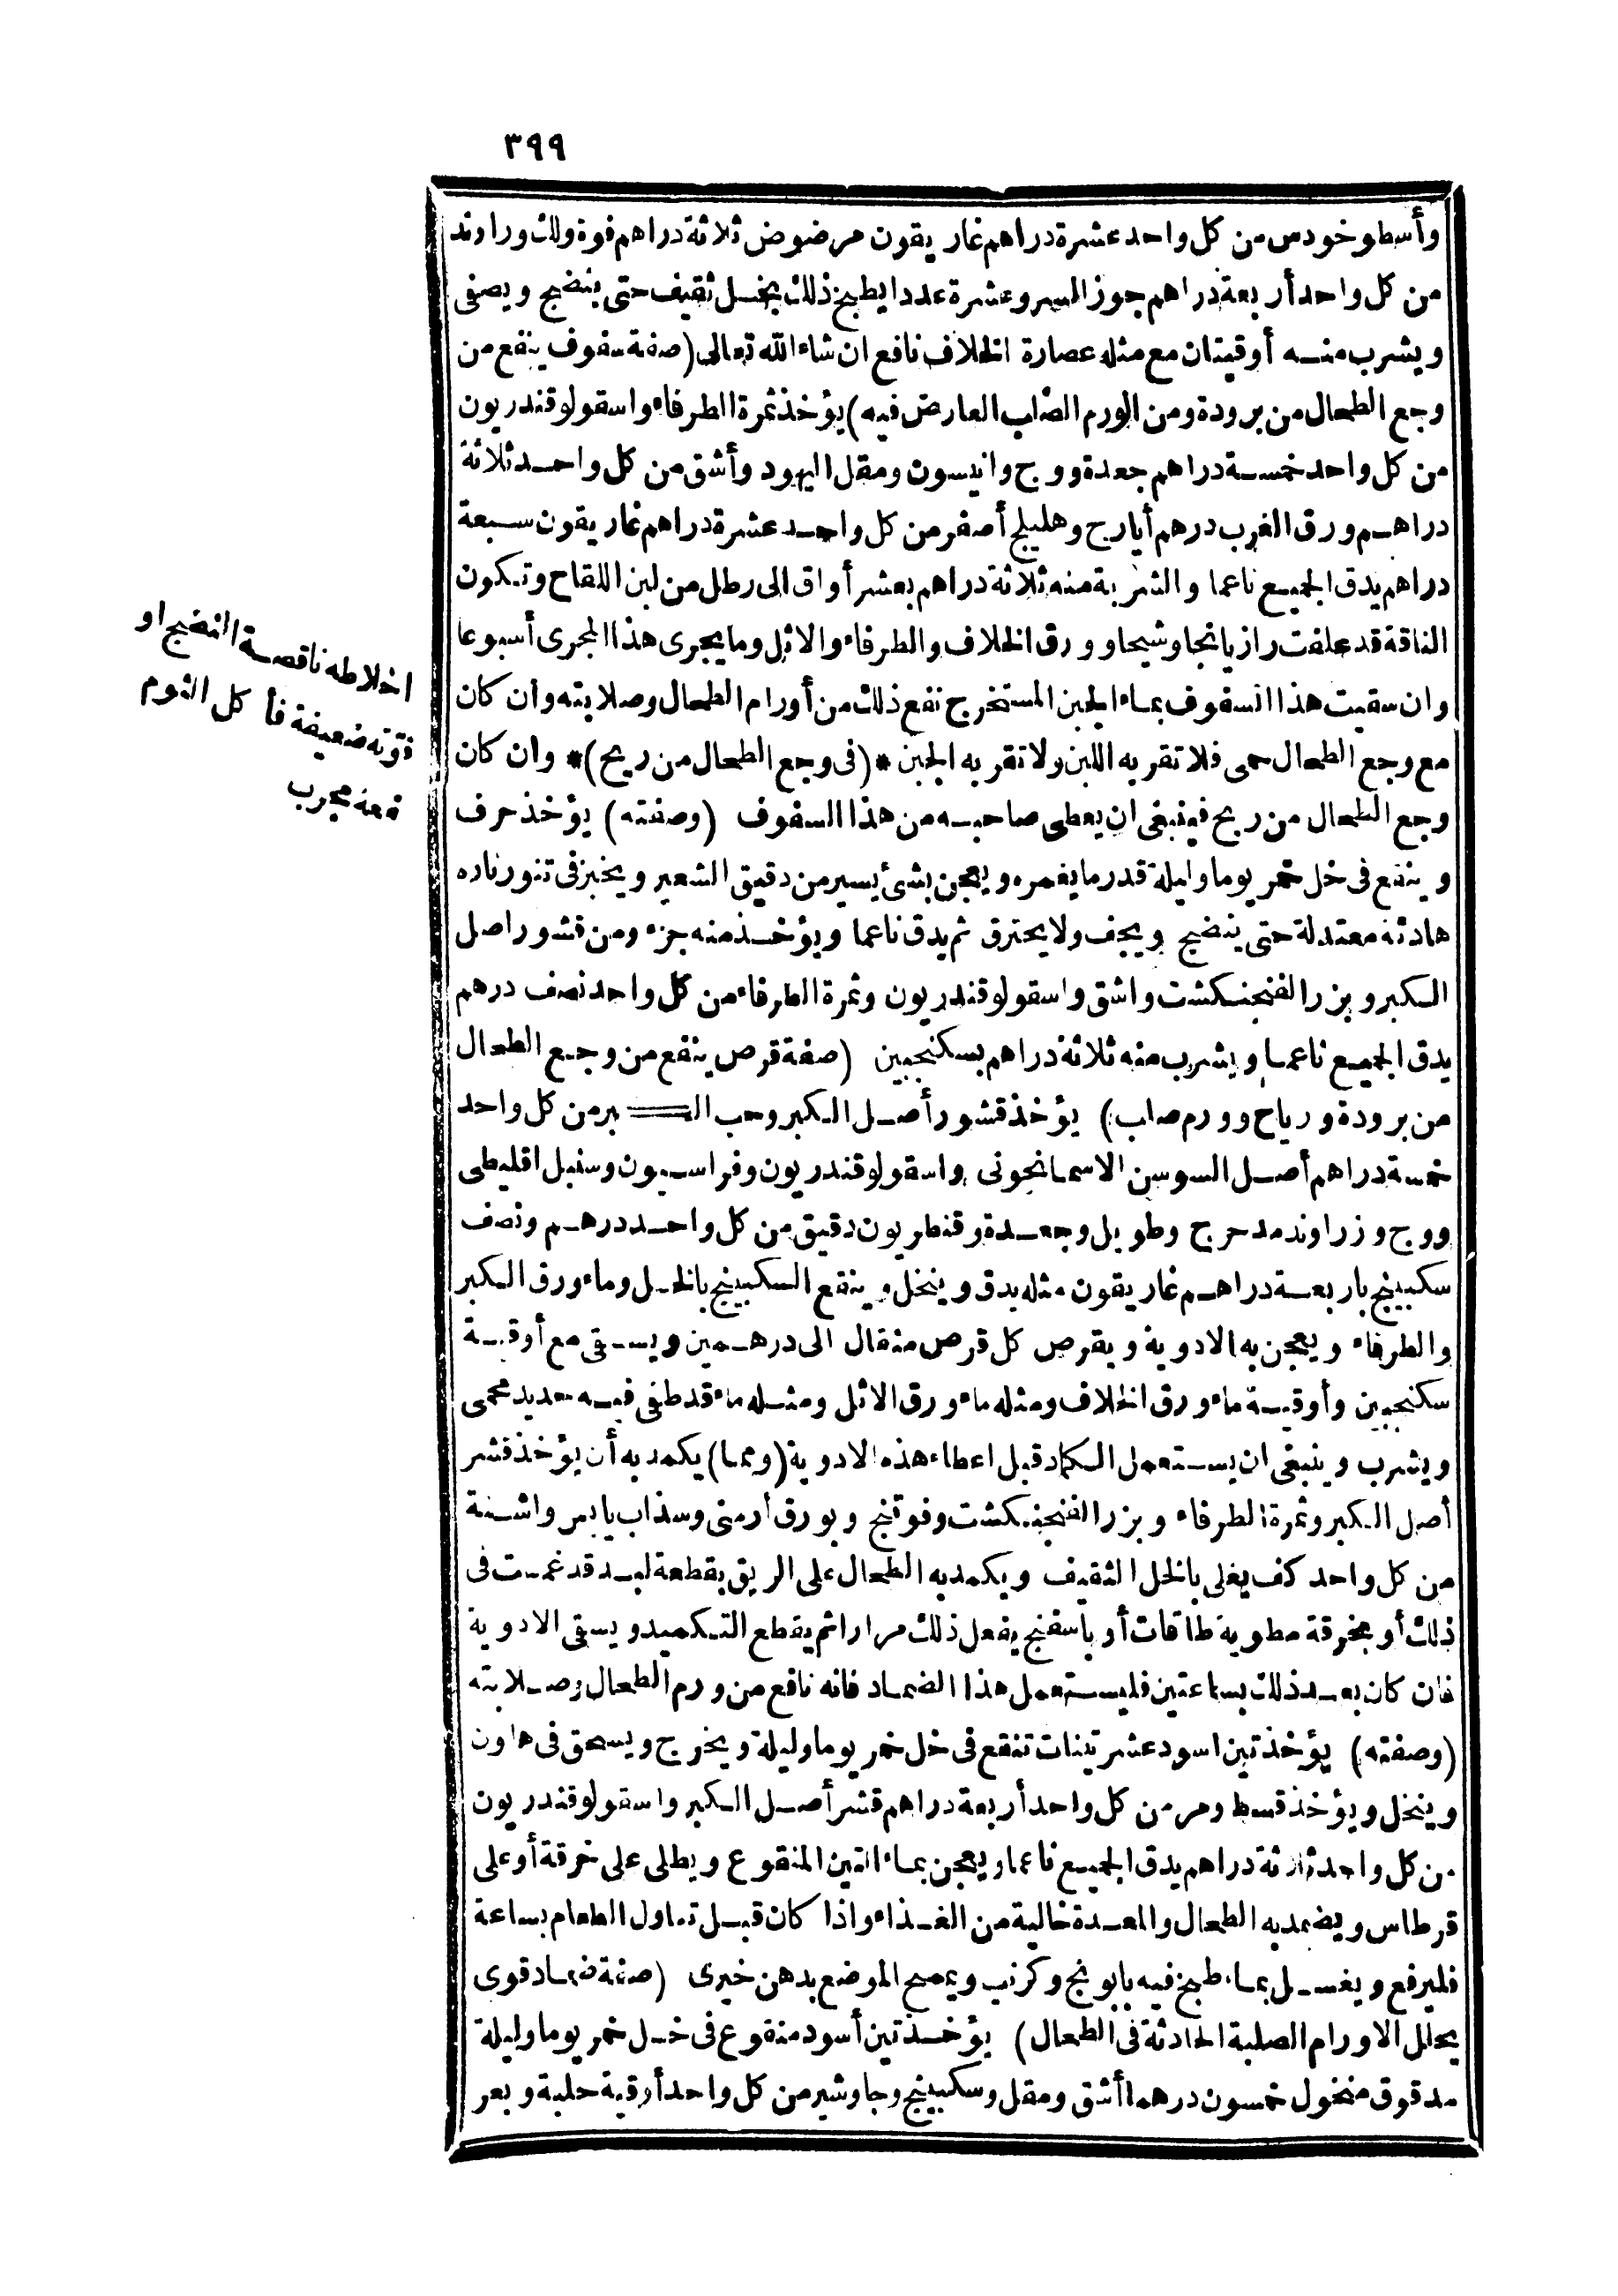 ٣٩٩
وأسطوخودس من كل واحد عشرة دراهم غاريقون مرضوض ثلاثة دراهم فوة ولك وراوند
من كل واحد أربعة دراهم جوز السرو عشرة عددا يطبخ ذلك بخل ثقيف حتى ينضج ويصفى
ويشرب منه أوقيتان مع مثله عصارة الخلاف نافع ان شاء الله تعالى (صفة سفوف ينفع من
وجع الطحال من برودة ومن الورم الصلب العارض فيه) يؤخذ ثمرة الطرفاء واسقولوقندريون
من كل واحد خمسة دراهم جعدة ووج وانيسون ومقل اليهود وأشق من كل واحد ثلاثة
دراهم ورق الغرب درهم أيارج وهليلج أصفر من كل واحد عشرة دراهم غاريقون سبعة
دراهم يدق الجميع ناعما والشربة منه ثلاثة دراهم بعشر أواق الى رطل من لبن اللقاح وتكون
الناقة قد علفت رازيانجا وشيحا وورق الخلاف والطرفاء والاثل وما يجرى هذا المجرى أسبوعا
وان سقيت هذا السفوف بماء الجبن المستخرج نفع ذلك من أورام الطحال وصلابته وان كان
مع وجع الطحال حمى فلا تقربه اللبن ولا تقربه الجبن *(فى وجع الطحال من ريح)* وان كان
وجع الطحال من ريح فينبغى ان يعطى صاحبه من هذا السفوف (وصفته) يؤخذ حرف
وينقع فى خل خمر يوما وليلة قدر ما يغمره ويعجن بشئ يسير من دقيق الشعير ويخبز فى تنور ناره
هادئة معتدلة حتى ينضج ويجف ولا يحترق ثم يدق ناعما ويؤخذ منه جزء ومن قشور اصل
الكبر وبزر الفنجنكشت واشق واسقولوقندريون وثمرة الطرفاء من كل واحد نصف درهم
يدق الجميع ناعما ويشرب منه ثلاثة دراهم بسكنجبين (صفة قرص ينفع من وجع الطحال
من برودة ورياح وورم صلب) يؤخذ قشور أصل الكبر وحب الكبر من كل واحد
خمسة دراهم أصل السوسن الاسمانجونى واسقولوقندريون وفراسيون وسنبل اقليطى
ووج وزراوند مدحرج وطويل وجعدة وقنطريون دقيق من كل واحد درهم ونصف
سكبينج بأربعة دراهم غاريقون مثله يدق وينخل وينقع السكبينج بالخل وماء ورق الكبر
والطرفاء ويعجن به الادوية ويقرص كل قرص مثقال الى درهمين ويسقى مع أوقية
سكنجبين وأوقية ماء ورق الخلاف ومثله ماء ورق الاثل ومثله ماء قد طفى فيه حديد محمى
ويشرب وينبغى ان يستعمل الكماد قبل اعطاء هذه الادوية (ومما) يكمد به أن يؤخذ قشر
أصل الكبر وثمرة الطرفاء وبزر الفنجنكشت وفوتنج وبورق أرمنى وسذاب يابس واشنة
من كل واحد كف يغلى بالخل الثقيف ويكمد به الطحال على الريق بقطعة لبد قد غمست فى
ذلك أو بخرقة مطوية طاقات أو باسفنج يفعل ذلك مرارا ثم يقطع التكميد ويسقى الادوية
فان كان بعد ذلك بساعتين فليستعمل هذا الضماد فانه نافع من ورم الطحال وصلابته
(وصفته) يؤخذ تين اسود عشر تينات تنقع فى خل خمر يوما وليلة ويخرج ويسحق فى هاون
وينخل ويؤخذ قسط ومر من كل واحد أربعة دراهم قشر أصل الكبر واسقولوقندريون
من كل واحد ثلاثة دراهم يدق الجميع ناعما ويعجن بماء التين المنقوع ويطلى على خرقة أو على
قرطاس ويضمد به الطحال والمعدة خالية من الغذاء واذا كان قبل تناول الطعام بساعة
فليرفع ويغسل بماء طبخ فيه بابونج وكرنب ويمسح الموضع بدهن خيرى (صفة ضماد قوى
يحلل الاورام الصلبة الحادثة فى الطحال) يؤخذ تين أسود منقوع فى خل خمر يوما وليلة
مدقوق منخول خمسون درهما أشق ومقل وسكبينج وجاوشير من كل واحد أوقية حلبة وبعر
اخلاطه ناقصة النضج او
قوته ضعيفة فأكل الثوم
مجرب